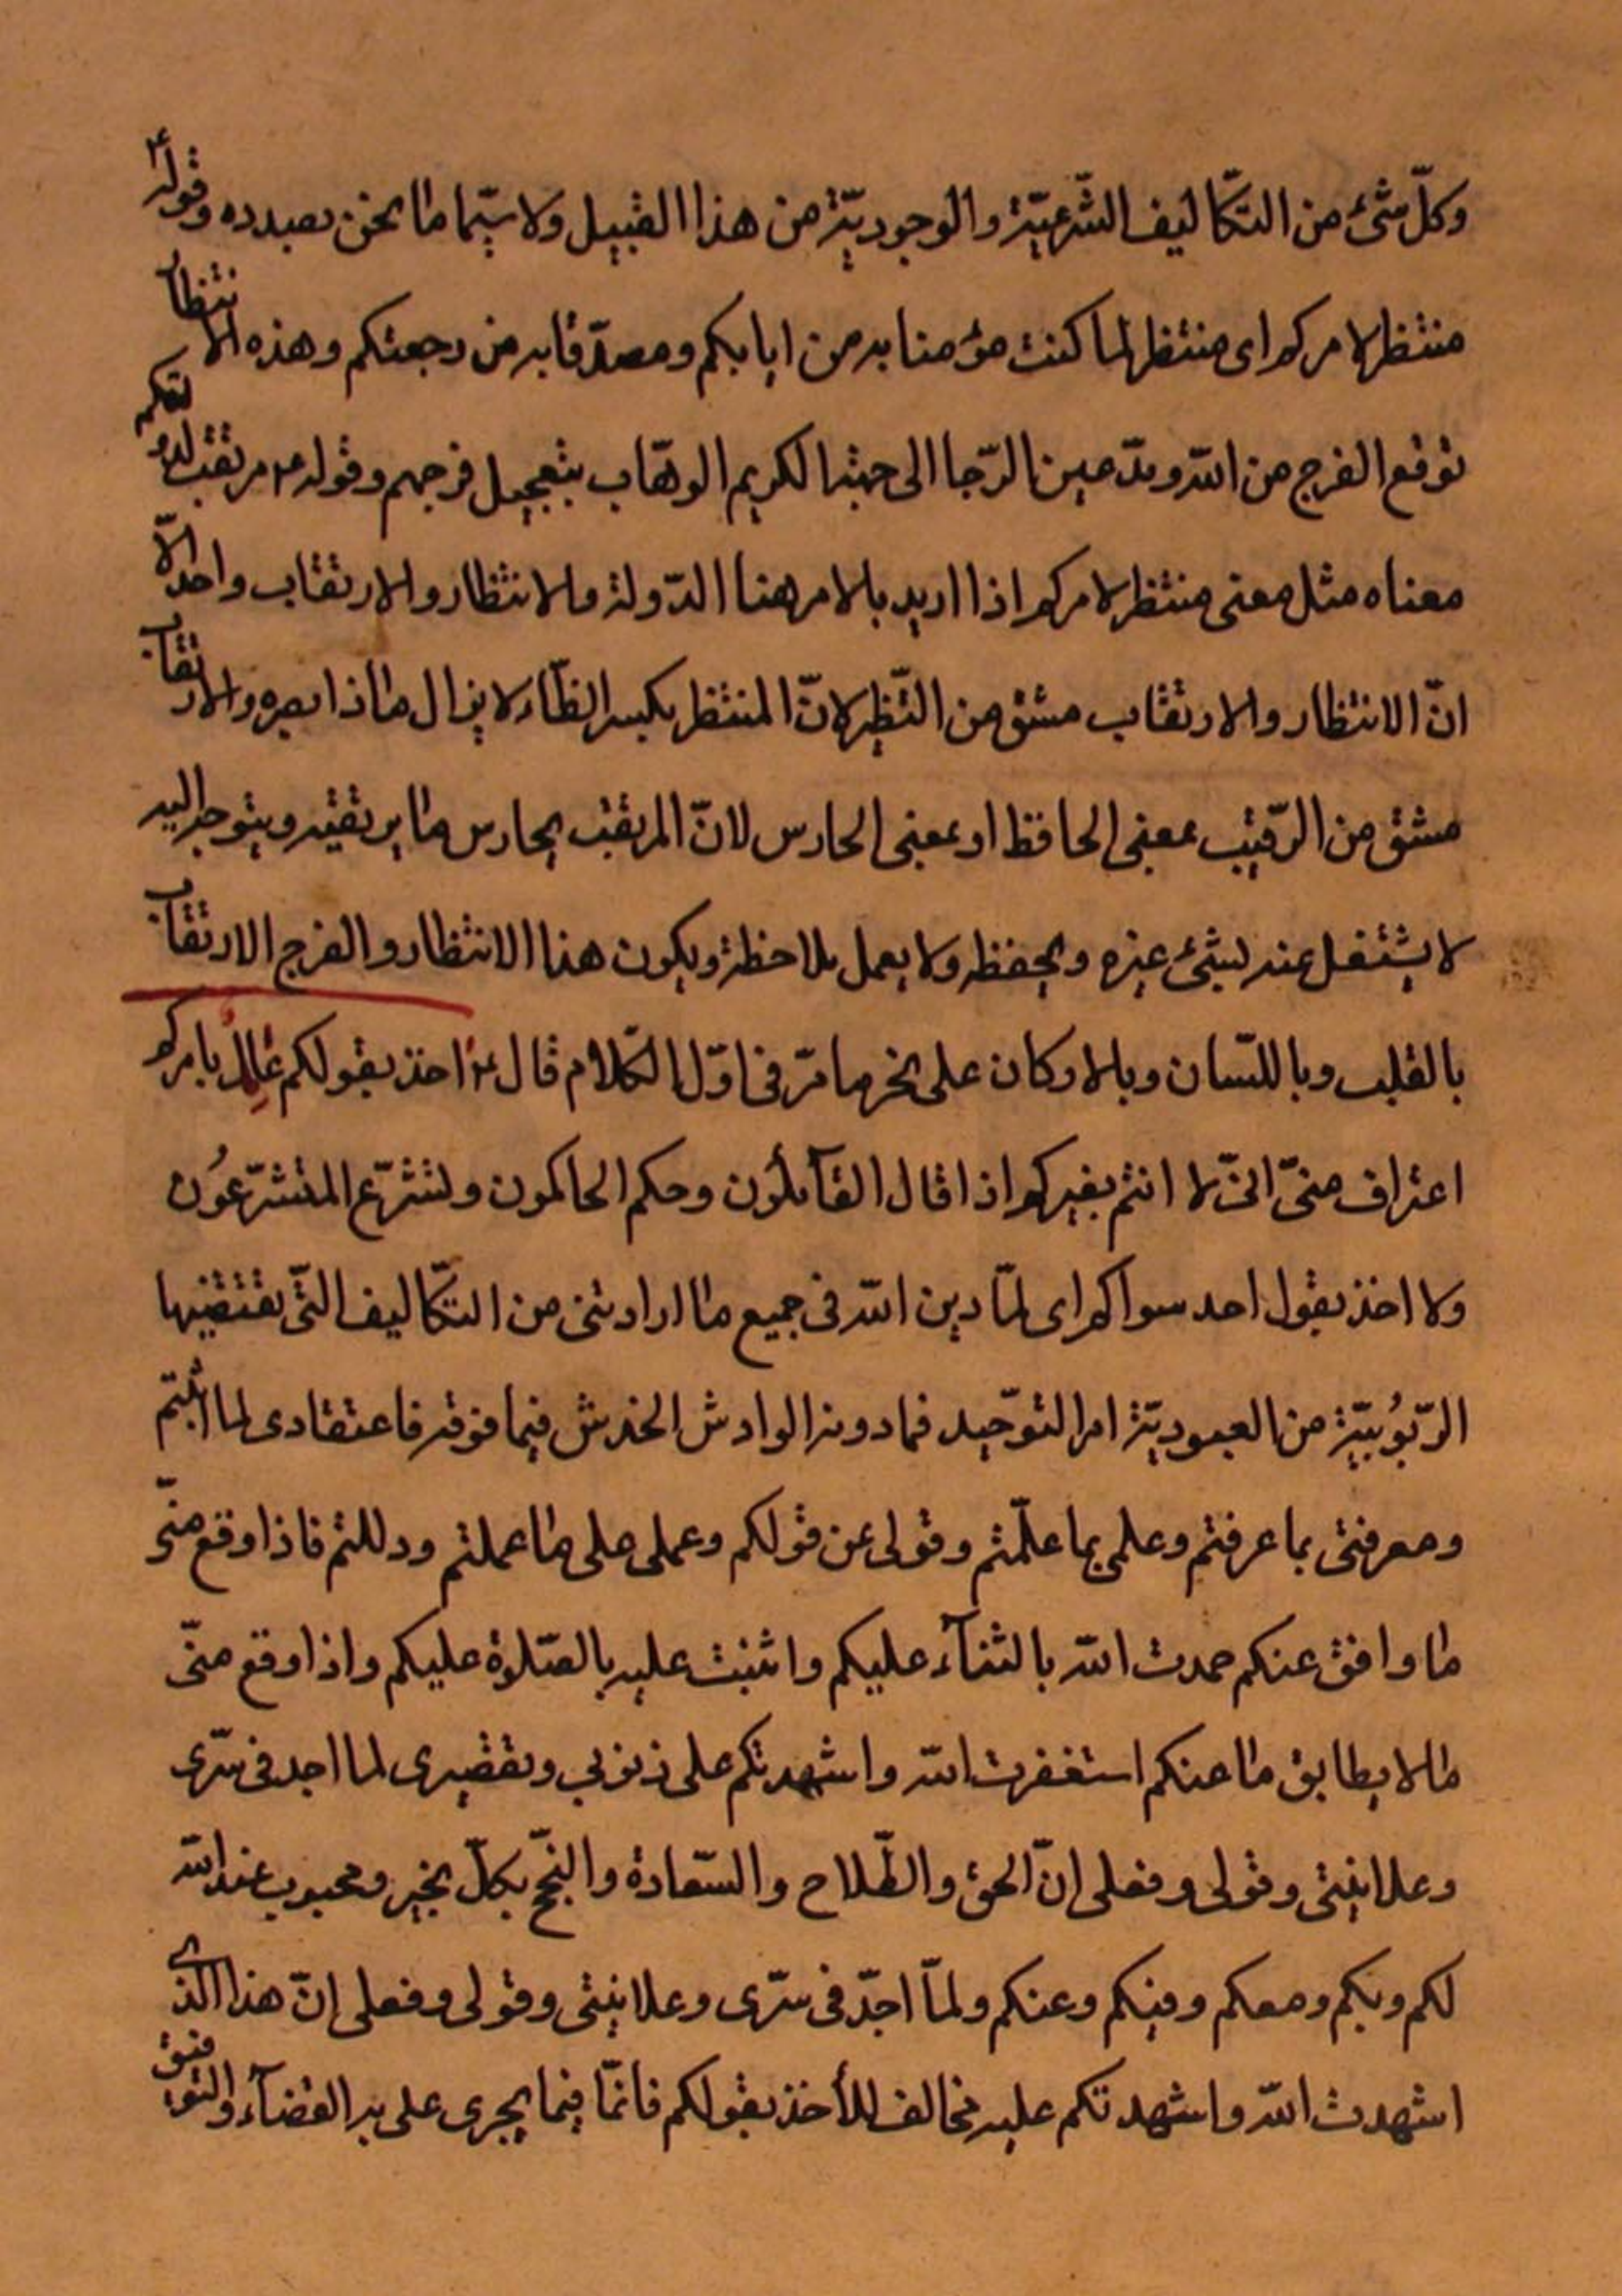 وكلّ شئ من التكّاليف الشّرعيّة والوجوديّة من هذا القبيل ولا سيّما ما نحن بصدده وقوله ع
منتظر لامركم اى منتظر لما كنت مؤمنا به من ايابكم ومصدّقا به من رجعتكم وهذه الانتظار
توقع الفرج من الله ومدّ عين الرّجا الى جهة الكريم الوهّاب بتعجيل فرجهم وقوله ع مرتقب لدولتكم
معناه مثل معنى منتظر لامركم اذا اريد بالامر هنا الدّولة والانتظار والارتقاب واحد الّا
انّ الانتظار والارتقاب مشتق من النّظر لانّ المنتظر بكسر الظّاء لا يزال مادّا بصره والارتقاب
مشتق من الرّقيب بمعنى الحافظ او بمعنى الحارس لانّ المرتقب يحارس ما يرتقبه ويتوجه اليه
لا يشتغل عنه لشئ غيره ويحفظه ولا يعمل ملاحظة ويكون هذا الانتظار والفرج الارتقاب
بالقلب وباللسّان وبالاركان على نحو ما مرّ فى اوّل الكلام قال ع اخذ بقولكم عامل بامركم
اعتراف منّى انّى لا انتم بغيركم اذا قال القآئلون وحكم الحاكمون وتشرّع المتشرّعون
ولا اخذ بقول احد سواكم اى لمّا دين الله فى جميع ما اراد منى من التكّاليف التّى تقتضيها
الرّبوُبيّة من العبوديّة امر التوّحيد فما دونه الوارش الخدش فيما فوقه فاعتقادى لما اثبتم
ومعرفتى بما عرفتم وعلمى بما علّمتم وقولى عن قولكم وعملى على ما عملتم ودللتم فاذا وقع منّى
ما وافق عنكم حمدت الله بالثنآء عليكم واثنيت عليه بالصّلوة عليكم واذا وقع منّى
ما لا يطابق ما عنكم استغفرت الله واشهدتكم على ذنوبي وتقصيرى لما اجد فى سرّى
وعلانيتى وقولى وفعلى انّ الحق والصّلاح والسّعادة والنجّح بكلّ بخير ومحبوب عند الله
لكم وبكم ومعكم وفيكم وعنكم ولمّا اجدّ فى سرّى وعلانيتى وقولى وفعلى انّ هذا الذى
اشهدت الله واشهدتكم عليه مخالف للأخذ بقولكم فانمّا فيما يجرى على يد القضآء والتوفيق